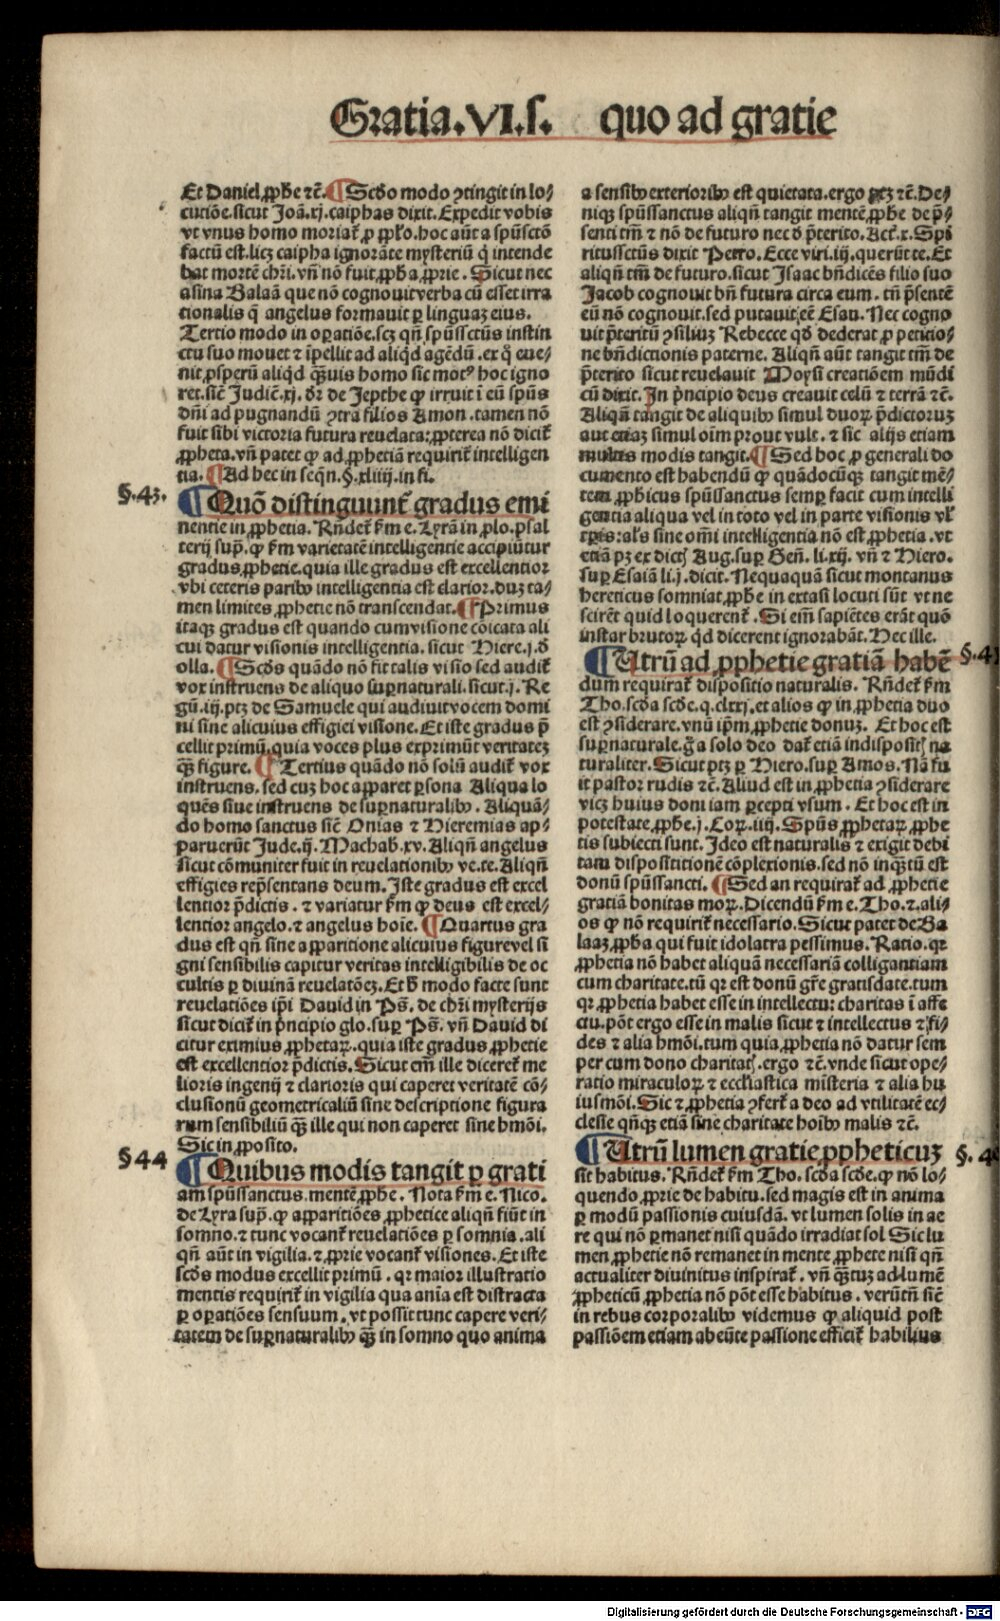 Gratia.VI.s. quo ad gratie
Et Daniel ꝓphe ⁊c̄. ¶ Scd̄o modo ↄtingit in lo⸗
cutiōe.sicut Joā.xj.caiphas dixit.Expedit vobis
vt vnus homo moriat̄ ꝓ pplo.hoc aūt a spūsctō
factū est.licꝫ caipha ignorāte mysteriū q̇ intende
bat mortē chr̄i.vn̄ nō fuit ꝓpha ꝓprie. Sicut nec
asina Balaā que nō cognouit verba cū esset irra
tionalis q̄ angelus formauit ꝑ linguaꝫ eius.
Tertio modo in oꝑatiōe.scꝫ qn̄ spūssctūs instin
ctu suo mouet ⁊ īpellit ad aliqd̄ agēdū.ex q̇ eue⸗
nit ꝓsperū aliqd̄ q̄ꝫuis homo sic motꝰ hoc igno
ret.sic̄ Judic̄.xj. dr̄ de Jepthe ꝙ irruit ī eū spūs
dn̄i ad pugnandū ↄtra filios Amon.tamen nō
fuit sibi victoria futura reuelata: ꝓpterea nō dicit̄
ꝓpheta.vn̄ patet ꝙ ad ꝓphetiā requirit̄ intelligen
tia. ¶ Ad hec in seqn̄.§.xliiij.in fi.
§.43.
¶ Quō distinguunt̄ gradus emi
nentie in ꝓphetia. Rn̄det̄ ẜm e. Lyrā in ꝓlo.psal
terij sup̄. ꝙ ẜm varietatē intelligentie accipiūtur
gradus ꝓphetie.quia ille gradus est excellentior
vbi ceteris paribꝰ intelligentia est clarior.duꝫ ta⸗
men limites ꝓphetie nō transcendat. ¶ Primus
itaqꝫ gradus est quando cum visione cōicata ali
cui datur visionis intelligentia. sicut Hiere.j.d̄
olla. ¶ Scd̄s quādo nō fit talis visio sed audit̄
vox instruens de aliquo suꝑnaturali.sicut.j. Re
gū.iij.ptꝫ de Samuele qui audiuit vocem domi
ni sine alicuius effigiei visione. Et iste gradus p̄
cellit primū.quia voces plus exprimūt veritateꝫ
q̄ꝫ figure. ¶ Tertius quādo nō solū audit̄ vox
instruens. sed cuꝫ hoc apparet ꝑsona Aliqua lo
quēs siue instruens de suꝑnaturalibꝰ. Aliquā⸗
do homo sanctus sic̄ Onias ⁊ Hieremias ap⸗
paruerūt Jude.ij. Machab.xv. Aliqn̄ angelus
sicut cōmuniter fuit in reuelationibꝰ ve.te. Aliqn̄
effigies rep̄sentans deum. Iste gradus est excel
lentior p̄dictis. ⁊ variatur ẜm ꝙ deus est excel⸗
lentior angelo.⁊ angelus hoīe. ¶ Quartus gra
dus est qn̄ sine apparitione alicuius figure vel si
gni sensibilis capitur veritas intelligibilis de oc
cultis ꝑ diuinā reuelatōeꝫ. Et h̄ modo facte sunt
reuelatiōes ip̄i Dauid in Ps̄. de chr̄i mysterijs
sicut dicit̄ in p̄ncipio glo. suꝑ Ps̄. vn̄ Dauid di
citur eximius ꝓphetaꝝ.quia iste gradus ꝓphetie
est excellentior p̄dictis. Sicut em̄ ille diceret̄ me
lioris ingenij ⁊ clarioris qui caperet veritatē cō⸗
clusionū geometricaliū sine descriptione figura
rum sensibiliū q̄ꝫ ille qui non caperet sine hmōi.
Sic in ꝓposito.
§44
¶ Quibus modis tangit ꝑ grati
am spūssanctus mentē ꝓphe. Nota ẜm e. Nico.
de Lyra sup̄. ꝙ apparitiōes ꝓphetice aliqn̄ fiūt in
somno.⁊ tunc vocant̄ reuelatiōes ꝑ somnia.ali
qn̄ aūt in vigilia.⁊ ꝓprie vocant̄ visiones. Et iste
scd̄s modus excellit primū. qr maior illustratio
mentis requirit̄ in vigilia qua anīa est distracta
ꝑ oꝑatiōes sensuum. vt possit tunc capere veri⸗
tatem de suꝑnaturalibꝰ q̄ꝫ in somno quo anima
a sensibꝰ exterioribꝰ est quietata.ergo ptꝫ ⁊c̄. De⸗
niqꝫ spūssanctus aliqn̄ tangit mentē ꝓphe de p̄⸗
senti tm̄ ⁊ nō de futuro nec d̄ p̄terito. Act̄.x. Spi
ritussctūs dixit Petro. Ecce viri.iij.querūt te. Et
aliqn̄ tm̄ de futuro.sicut Isaac bn̄dicēs filio suo
Jacob cognouit bn̄ futura circa eum. tn̄ p̄sentē
eū nō cognouit.sed putauit eē Esau. Nec cogno
uit p̄teritū ↄsiliuꝫ Rebecce qd̄ dederat ꝓ petitio⸗
ne bn̄dictionis paterne. Aliqn̄ aūt tangit tm̄ de
p̄terito sicut reuelauit Moysi creatiōem mūdi
cū dixit. In p̄ncipio deus creauit celū ⁊ terrā ⁊c̄.
Aliqn̄ tangit de aliquibꝰ simul duoꝝ p̄dictoruꝫ
aut etiaꝫ simul oīm prout vult. ⁊ sic alijs etiam
multis modis tangit. ¶ Sed hoc ꝓ generali do
cumento est habendū ꝙ quādocūqꝫ tangit mē⸗
tem ꝓphicus spūssanctus semꝑ facit cum intelli
gentia aliqua vel in toto vel in parte visionis vl̄
tp̄is:als̄ sine om̄i intelligentia nō est ꝓphetia.vt
etiā pꝫ ex dictꝭ Aug.suꝑ Gen̄. li.xij. vn̄ ⁊ Hiero.
suꝑ Esaiā li.j.dicit. Nequaquā sicut montanus
hereticus somniat ꝓphe in extasi locuti sūt vt ne
scirēt quid loquerent̄. Si em̄ sapiētes erāt quō
instar brutoꝝ qd̄ dicerent ignorabāt. Hec ille.
¶ Utrū ad ꝓphetie gratiā habē §.4
dum requirat̄ dispositio naturalis. Rn̄det̄ ẜm
Tho.scd̄a scd̄e.q.clxxj.et alios ꝙ in ꝓphetia duo
est ↄsiderare.vnū ip̄m ꝓphetie donuꝫ. Et hoc est
suꝑnaturale.q̄a a solo deo dat̄ etiā indispositꝭ na
turaliter. Sicut ptꝫ ꝑ Hiero.suꝑ Amos. Nā fu
it pastor rudis ⁊c̄. Aliud est in ꝓphetia ↄsiderare
vicꝫ huius doni iam ꝑcepti vsum. Et hoc est in
potestate ꝓphe.j. Coꝝ.iiij. Spūs ꝓphetaꝝ ꝓphe
tis subiecti sunt. Ideo est naturalis ⁊ exigit debi
tam dispositionē cōplexionis.sed nō inq̄ꝫtū est
donū spūssancti. ¶ Sed an requirat̄ ad ꝓphetie
gratiā bonitas moꝝ. Dicendū ẜm e. Tho.⁊.ali⸗
os ꝙ nō requirit̄ necessario. Sicut patet de Ba
laaꝫ ꝓpha qui fuit idolatra pessimus. Ratio.qr
ꝓphetia nō habet aliquā necessariā colligantiam
cum charitate.tū qr est donū gr̄e gratisdate.tum
qr ꝓphetia habet esse in intellectu: charitas ī affe
ctu. pōt ergo esse in malis sicut ⁊ intellectus ⁊ fi⸗
des ⁊ alia hmōi.tum quia ꝓphetia nō datur sem
per cum dono charitatꝭ.ergo ⁊c̄.vnde sicut ope⸗
ratio miraculoꝝ ⁊ eccl̄iastica misteria ⁊ alia hu
iusmōi. Sic ⁊ ꝓphetia ↄfert̄ a deo ad vtilitatē ec⸗
clesie qn̄qꝫ etiā sine charitate hoībꝰ malis ⁊c̄.
¶ Utrū lumen gratie ꝓpheticuꝫ §.4
sit habitus. Rn̄det̄ ẜm Tho. scd̄a scd̄e. ꝙ nō lo⸗
quendo ꝓprie de habitu.sed magis est in anima
ꝑ modū passionis cuiusdā. vt lumen solis in ae
re qui nō ꝑmanet nisi quādo irradiat sol Sic lu
men ꝓphetie nō remanet in mente ꝓphete nisi qn̄
actualiter diuinitus inspirat̄. vn̄ q̄ꝫtuꝫ ad lumē
ꝓpheticū ꝓphetia nō pōt esse habitus. verūtn̄ sic̄
in rebus corporalibꝰ videmus ꝙ aliquid post
passiōem etiam abeūte passione efficit̄ habilius
Digitalisierung gefördert durch die Deutsche Forschungsgemeinschaft - DFG